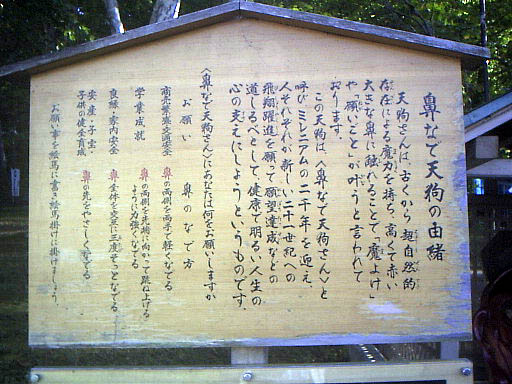 鼻なで天狗の由緒
天狗さんは、古くから超自然的
存在による魔力を持ち、高くて赤い
大きな鼻に触れることで「魔よけ」
や「願いごと」が叶うと言われて
おります。
この天狗は、〈鼻なで天狗さん〉と
呼びミレニアムの二千年を迎え、
人それぞれが新しい二十一世紀への
飛翔躍進を願って願望達成などの
道しるべとして、健康で明るい人生の
心の支えにしようというものです。
〈鼻なで天狗さん〉にあなたは何をお願いしますか
お願い 鼻のなで方
商売繁盛・交通安全 鼻の両側を両手で軽くなでる
学業成就 鼻の両側を先端に向かって跳ね上げる
ように力強くなでる
良縁・家内安全 鼻全体を交互に三度そっとなでる
安産・子宝・ 鼻の先をやさしくなでる
子供の健全育成
お願い事を絵馬に書き絵馬掛けに掛けましょう。